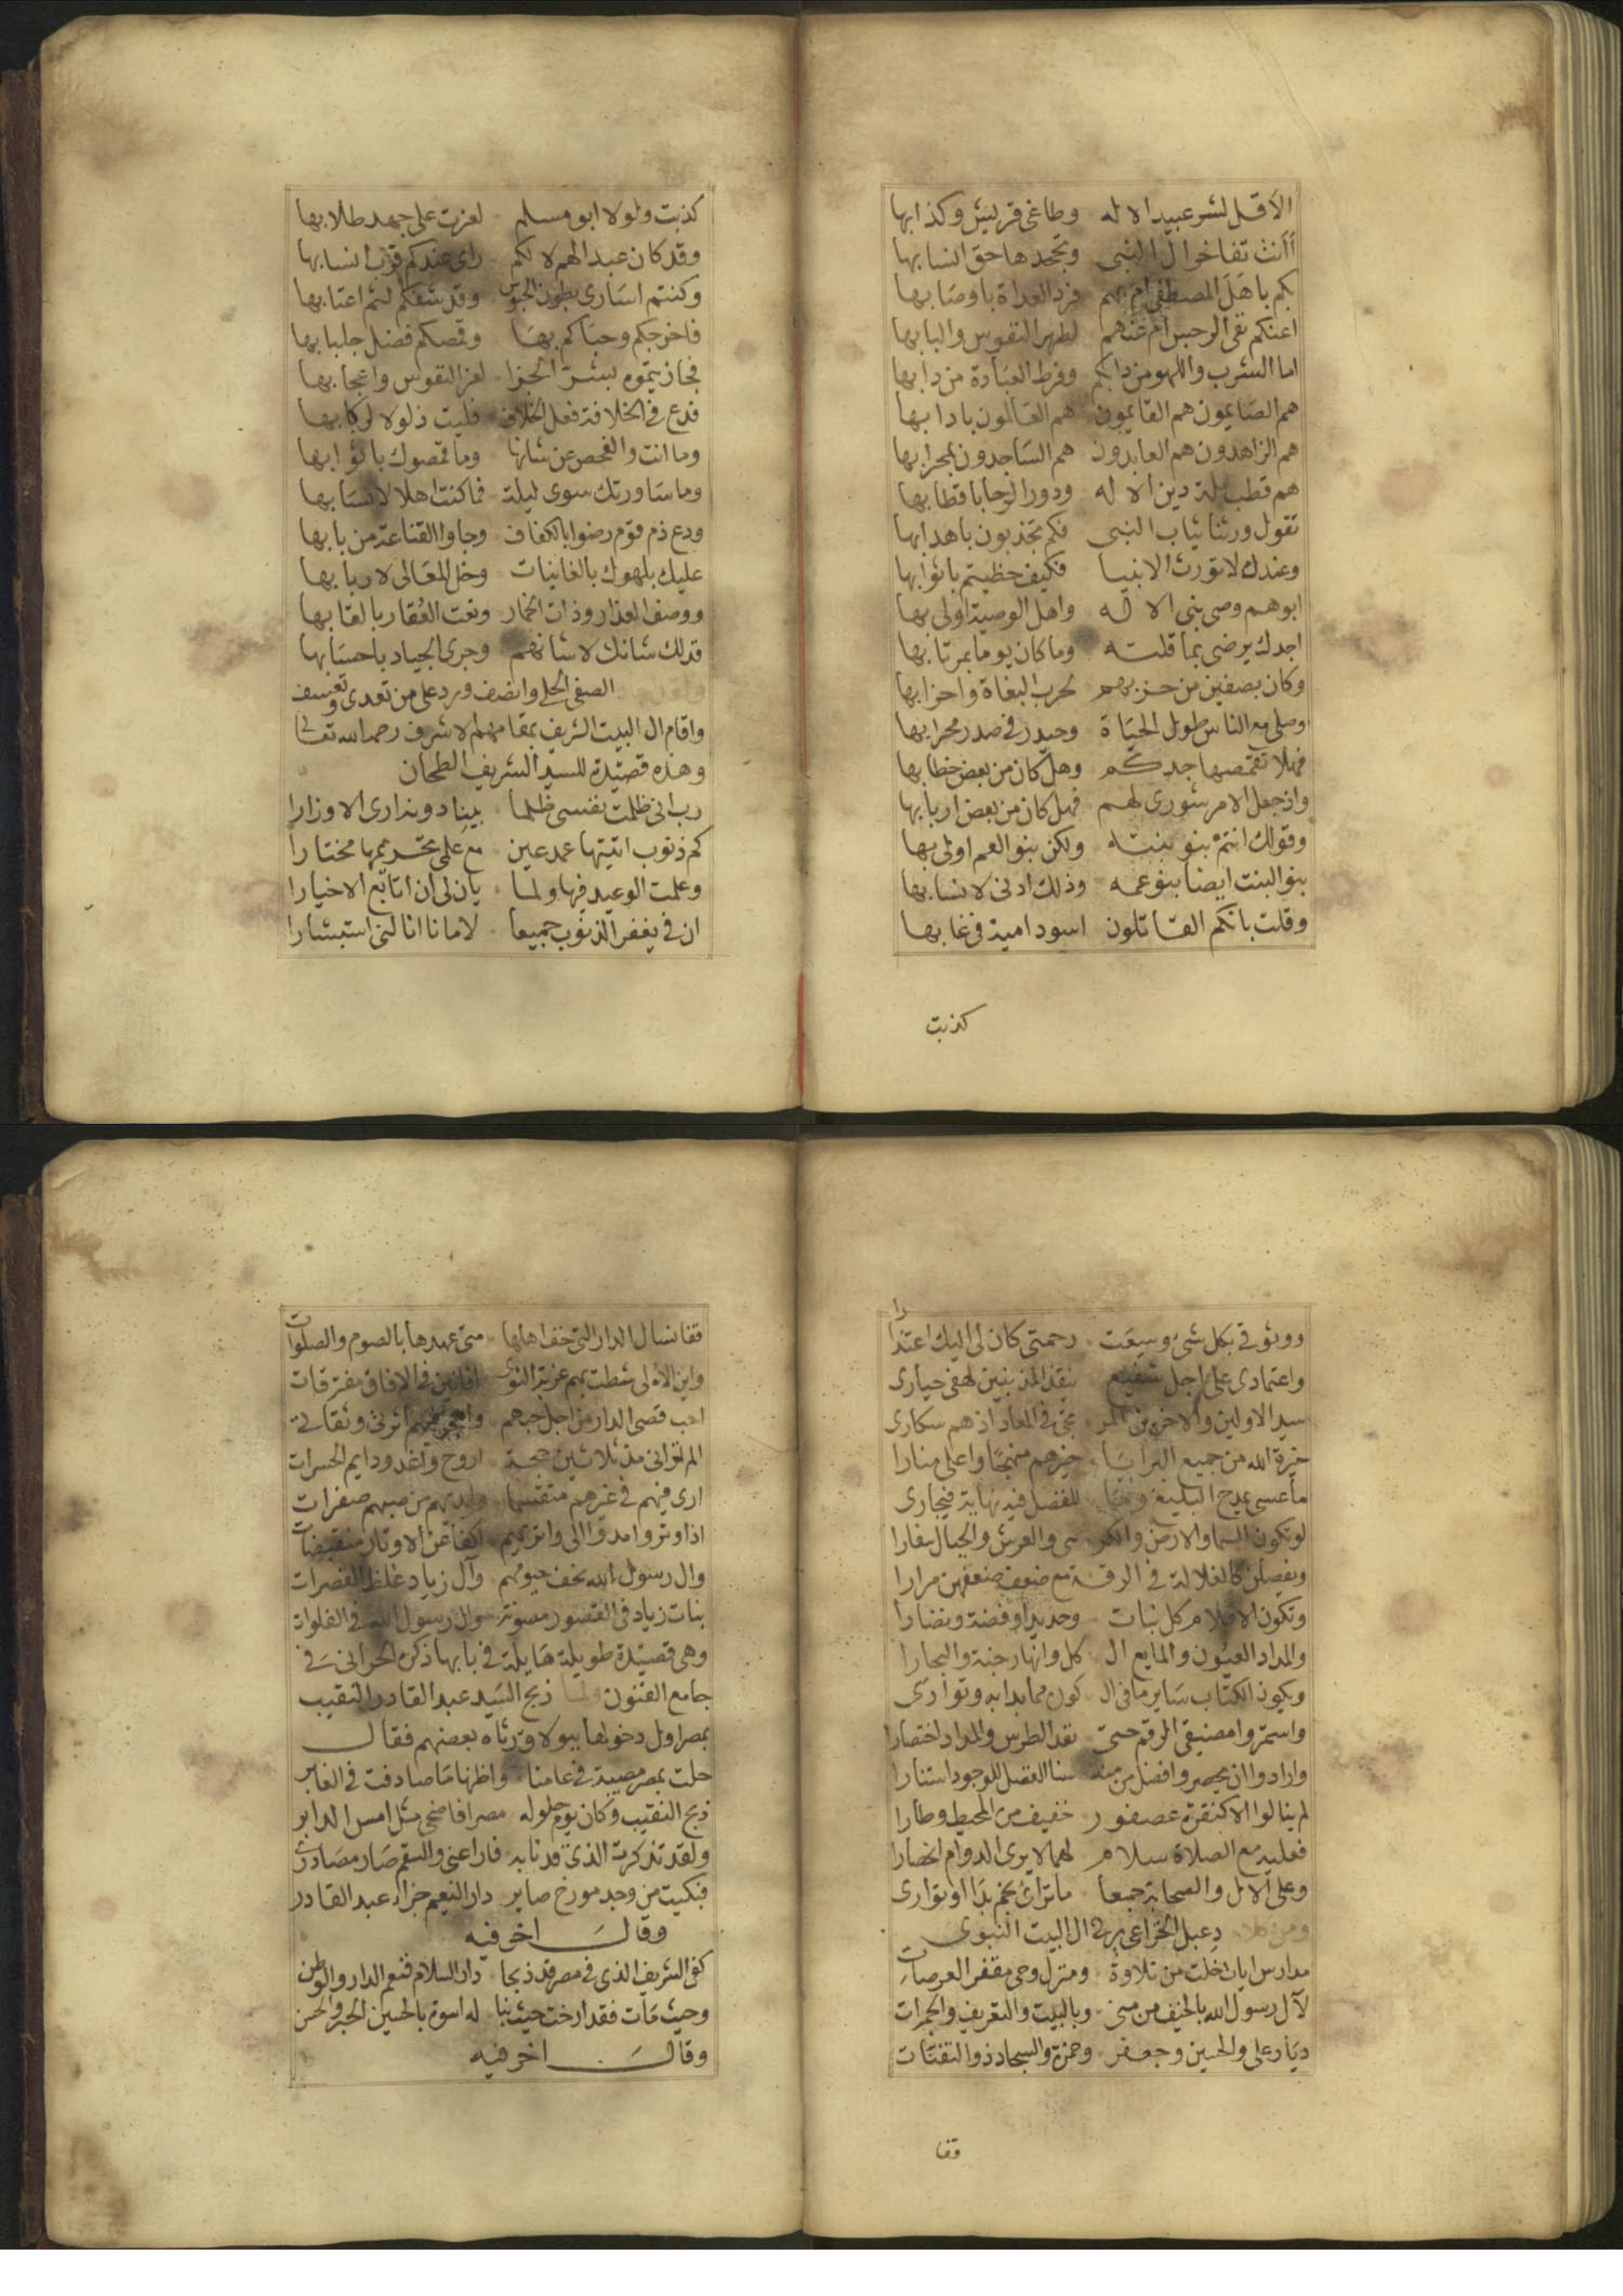 الا قل لشر عبيد الاله وطاغى قريش وكذابها
أأنت تفاخر ال النبى وتجحدها حق انسابها
بكم باهل المصطفى ام بهم فرد العداة باوصابها
اعنكم نفى الرجس ام عنهم لطهر النفوس والبابها
اما الشرب واللهو من دابكم وفرط العبادة من دابها
هم الصايمون هم القايمون هم العالمون بادابها
هم الزاهدون هم العابدون هم الساجدون لمحرابها
هم قطب ملة دين الاله ودور الرحا باقطابها
تقول ورثنا ثياب النبى فكم تجذبون باهدابها
وعندك لا تورث الانبيا فكيف حظيتم باثوابها
ابوهم وصى بنى الاله واهل الوصية اولى بها
اجدك يرضى بما قلته وما كان يوما بمرتابها
وكان بصفين من حزبهم لحرب البغاة واحزابها
وصلى مع الناس طول الحياة وحيدر فى صدر محرابها
فهلا تقمصها جدكم وهل كان من بعض خطابها
واذ جعل الامر شورى لهم فهل كان من بعض اربابها
وقولك انتم بنو بنته ولكن بنو العم اولى بها
بنو البنت ايضا بنو عمه وذلك ادنى لانسابها
وقلت بانكم القاتلون اسود امية فى غابها
كذبت
كذبت ولولا ابو مسلم لعزت على جهد طلابها
وقد كان عبدا لهم لا لكم راى عندكم قرب انسابها
وكنتم اسارى بطون الحبوس وقد شفكم لثم اعتابها
فاخرجكم وحباكم بها وقمصكم فضل جلبابها
فجازيتموه بشر الجزا لعز النفوس واعجابها
فدع فى الخلافة فعل الخلاف فليت ذلولا لركابها
وما انت والفحص عن شانها وما قمصوك باثوابها
وما ساورتك سوى ليلة فما كنت اهلا لانسابها
ودع ذم قوم رضوا بالكفاف وجاوا القناعة من بابها
عليك بلهوك بالغانيات وخل المعالى لاربابها
ووصف العذار وذات الخمار ونعت العقار بالقابها
فذلك شانك لا شانهم وجرى الجياد باحسابها
ولقد الصفى الحلى وانصف ورد على من تعدى وتعسف
واقام ال البيت الشريف بمقامهم الاشرف رحمه الله تعالى
وهذه قصيدة للسيد الشريف الطحان
رب انى ظلمت نفسى ظلما بيناد ونداري الاوزارا
كم ذنوب اتيتها عمد عين مع على بتحريمها مختارا
وعلمت الوعيد فيها ولما يان لى ان اتابع الاخيارا
ان فى يغفر الذنوب جميعا لامانا انالنى استبشارا
ووثوقى بكل شى وسعت رحمتى كان لى اليك اعتذارا
واعتمادى على اجل شفيع ينقذ المذنبين لهفى حيارى
سيد الاولين والاخرين المرتجى فى المعاد اذ هم سكارى
خيرة الله من جميع البرايا خيرهم منهجا واعلى منارا
ما عسى يمدح البليغ للفضل فيه نهاية فيجارى
لو تكون السما والارض والكرسى والعرش والجبال سفارا
ويفصلن كالغلالة فى الرقة مع ضعف ضعفهن مرارا
وتكون الاقلام كل نبات وحديد او فضة ونضارا
والمداد العيون والمايع الكل وانهار جنة والبحارا
ويكون الكتاب ساير ما فى الكون مما بدا به وتوارى
واستمروا مضيقى الرقم حتى نفد الطرس والمداد اختصارا
وارادوا ان يحصروا فضل من منه سنا الفضل للوجود استنارا
لم ينالوا الا كنقرة عصفور خفيف من المحيط وطارا
فعليه مع الصلاة سلام لهما لا يرى الدوام انحصارا
وعلى الال والصحابة جمعا ما تراى نجم بدا او توارى
ومن كلام دعبل الخزاعى يرثى ال البيت النبوى
مدارس ايات خلت من تلاوة ومنزل وحى مقفر العرصات
لآل رسول الله بالخيف من منى وبالبيت والتعريف والجمرات
ديار على والحسين وجعفر وحمزة والسجاد ذو الثفنات
قفا
قفا نسال الدار التى خف اهلها متى عهدها بالصوم والصلوات
واين الاولى شطت بهم غربة النوى افانين فى الافاق مفترقات
احب قصى الدار من اجل حبهم واهجر فيهم اسرتى وثقاتى
الم ترانى مذ ثلاثين حجة اروح واغدو دايم الحسرات
ارى فيهم فى غيرهم متقسما وايديهم من فيهم صفرات
اذا وتروا مدوا الى واتريهم اكفا عن الاوتار منقبضات
وال رسول الله نحف جسومهم وآل زياد غلظ القصرات
بنات زياد فى القصور مصونة وال رسول الله فى الفلوات
وهى قصيدة طويلة هايلة فى بابها ذكره الحرانى فى
جامع الفنون ولما ذبح السيد عبد القادر النقيب
بمصر اول دخولها ببولاق رثاه بعضهم فقال
حلت بمصر مصيبة فى عامنا واظنها ما صادفت فى الغابر
ذبح النقيب وكان يوم حلوله مصرا فاضحى مثل امس الدابر
ولقد تذكرت الذى قد نابه فاراعنى والسقم صار مصادرى
فبكيت من وجد مورخ صابر دار النعيم جزاء عبد القادر
وقال اخر فيه
كفى الشريف الذى فى مصر قد ذبحا دار السلام فنعم الدار والوطن
وحيث مات فقد ارخت حيث بنا له اسوة بالحسين الحبر والحسن
وقال اخر فيه